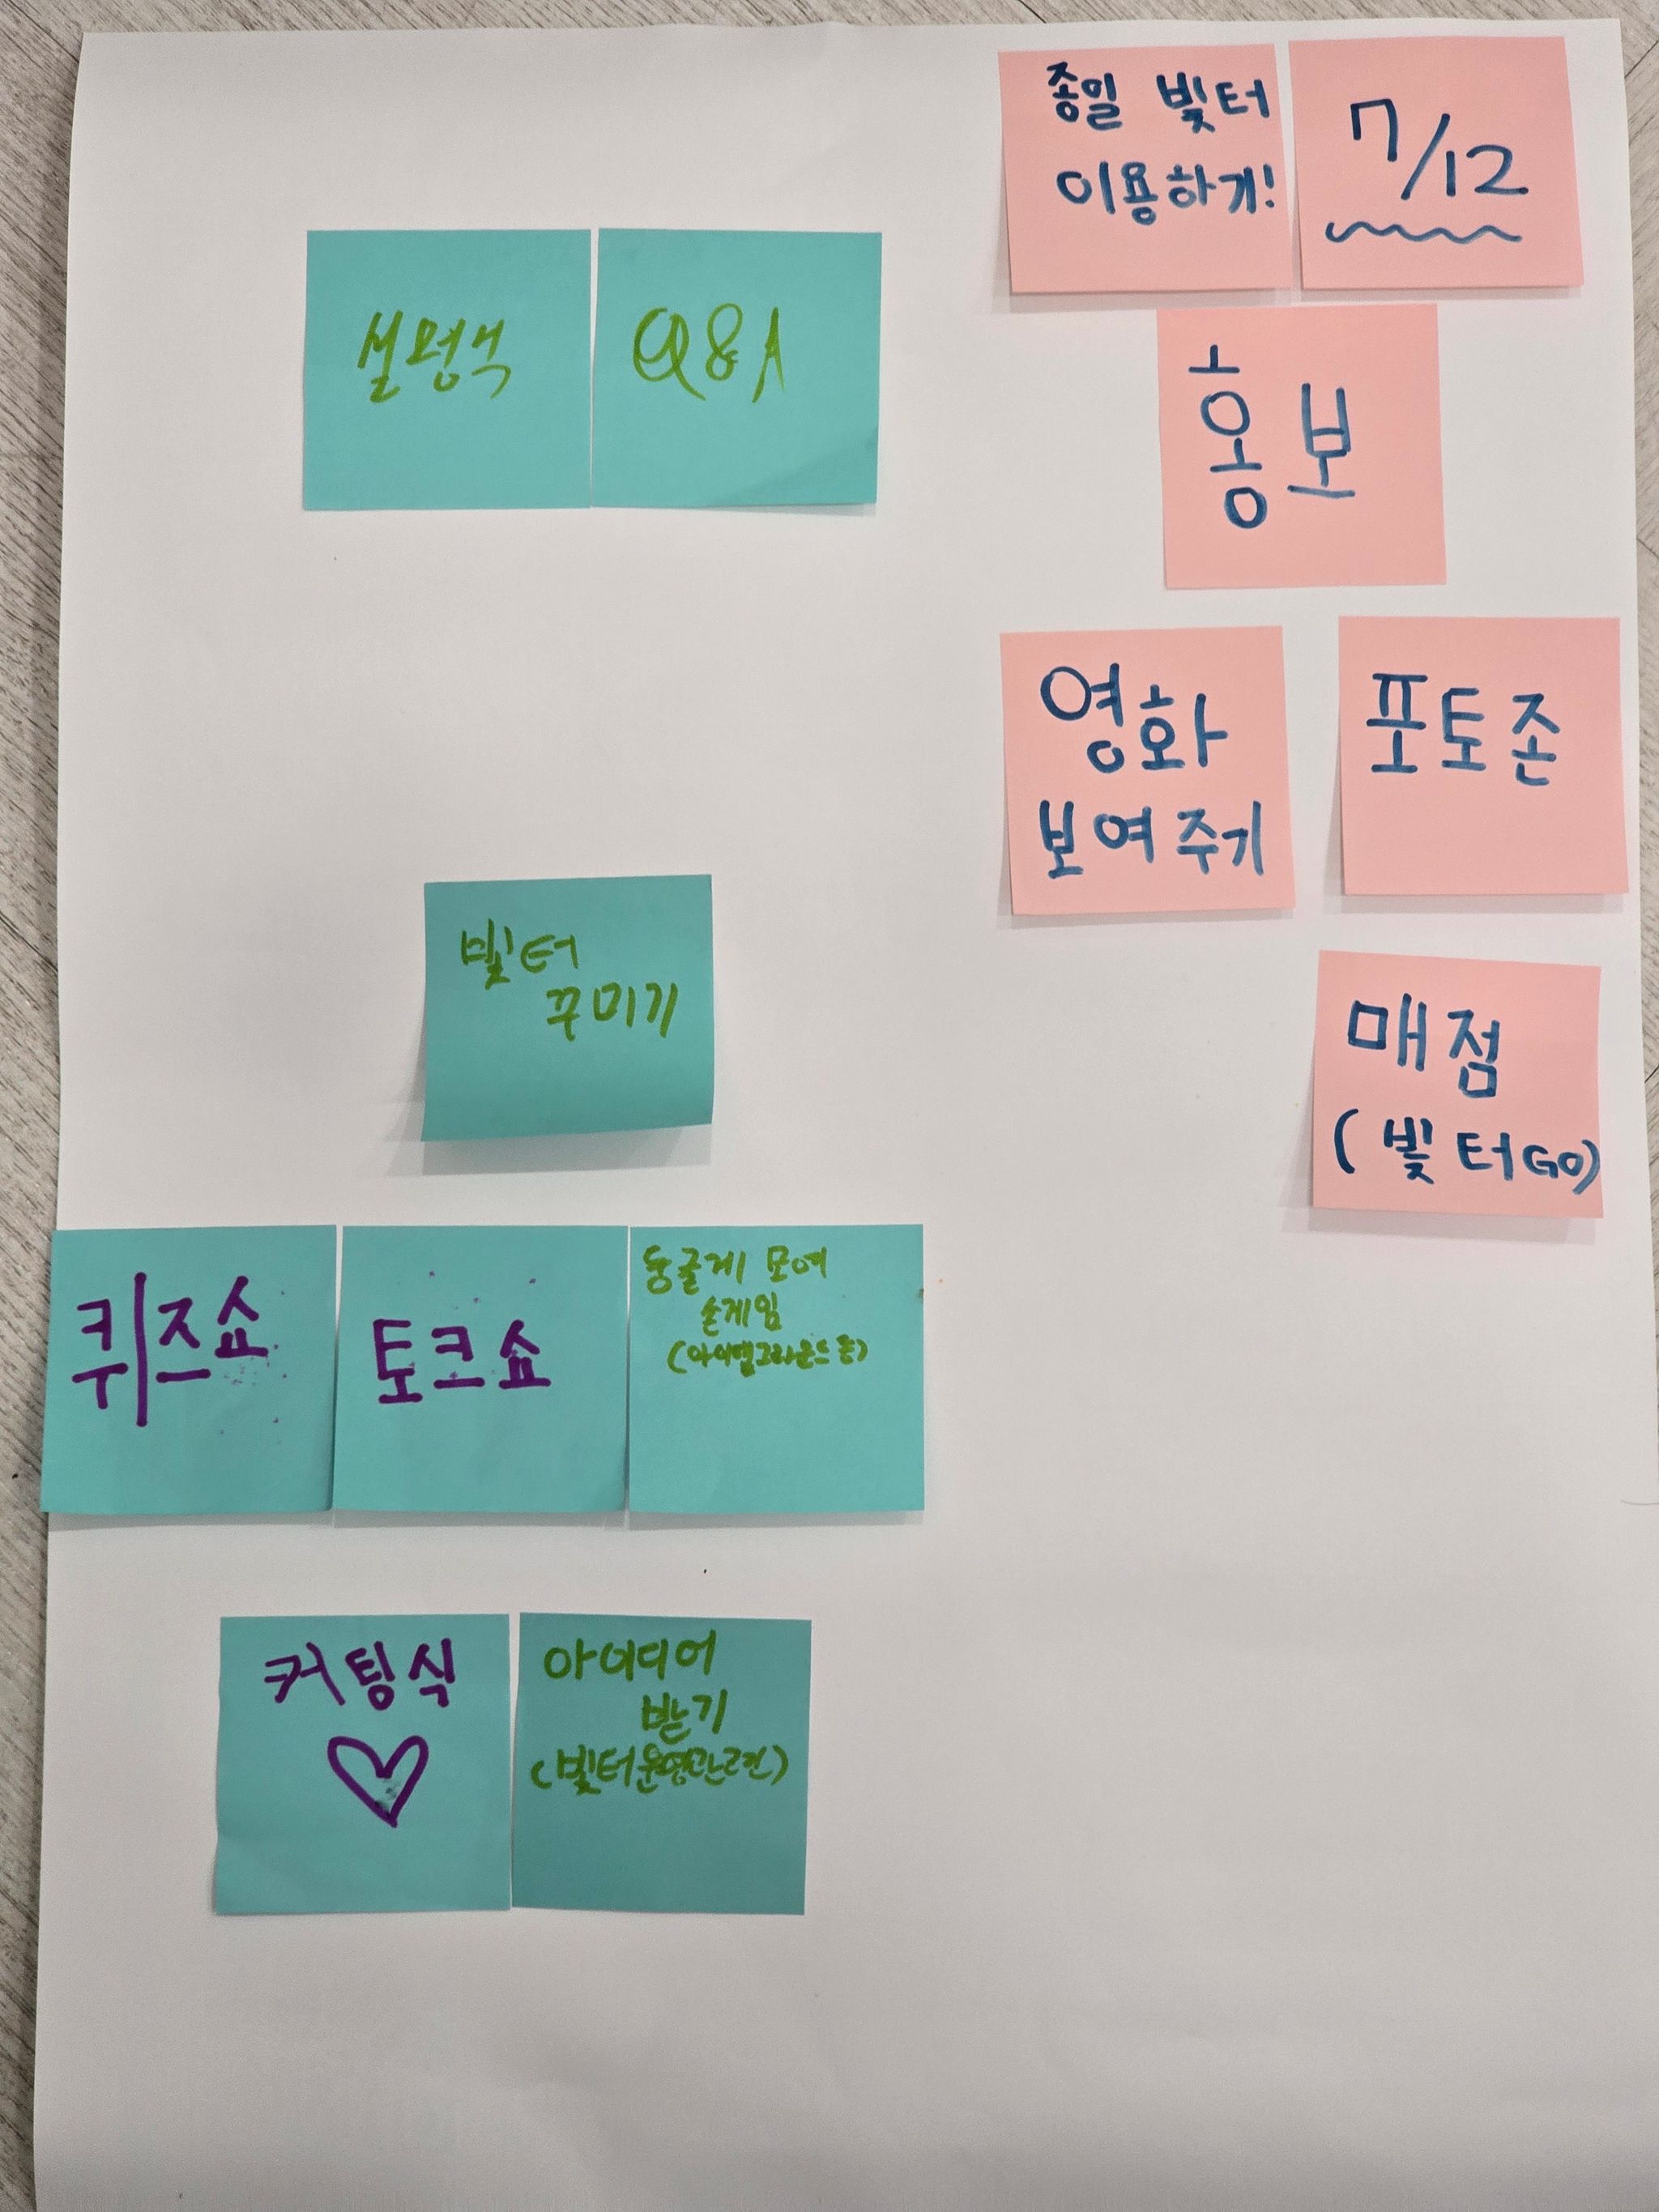 종일 빛터
이용하기!
7/12
설명색
Q&A
홍보
영화
보여주기
포토존
빛터
꾸미기
매점
(빛터GO)
퀴즈쇼
토크쇼
둥글게 모여
손게임
(아이엠그라운드 등)
커팅식
아이디어
받기
(빛터운영관련)